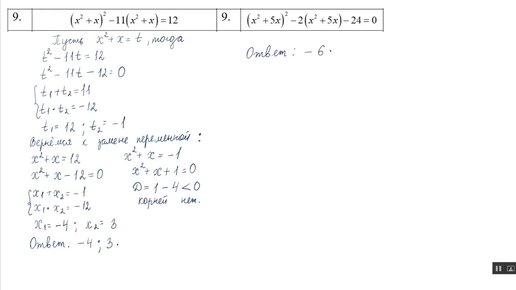 9. (x² + x)² − 11(x² + x) = 12
9. (x² + 5x)² − 2(x² + 5x) − 24 = 0
Пусть x² + x = t, тогда
t² − 11t = 12
t² − 11t − 12 = 0
{ t₁ + t₂ = 11
t₁ · t₂ = −12
t₁ = 12 ; t₂ = −1
Вернёмся к замене переменной :
x² + x = 12
x² + x − 12 = 0
{ x₁ + x₂ = −1
x₁ · x₂ = −12
x₁ = −4 ; x₂ = 3
Ответ. −4 ; 3 .
x² + x = −1
x² + x + 1 = 0
D = 1 − 4 < 0
корней нет.
Ответ : − 6 .